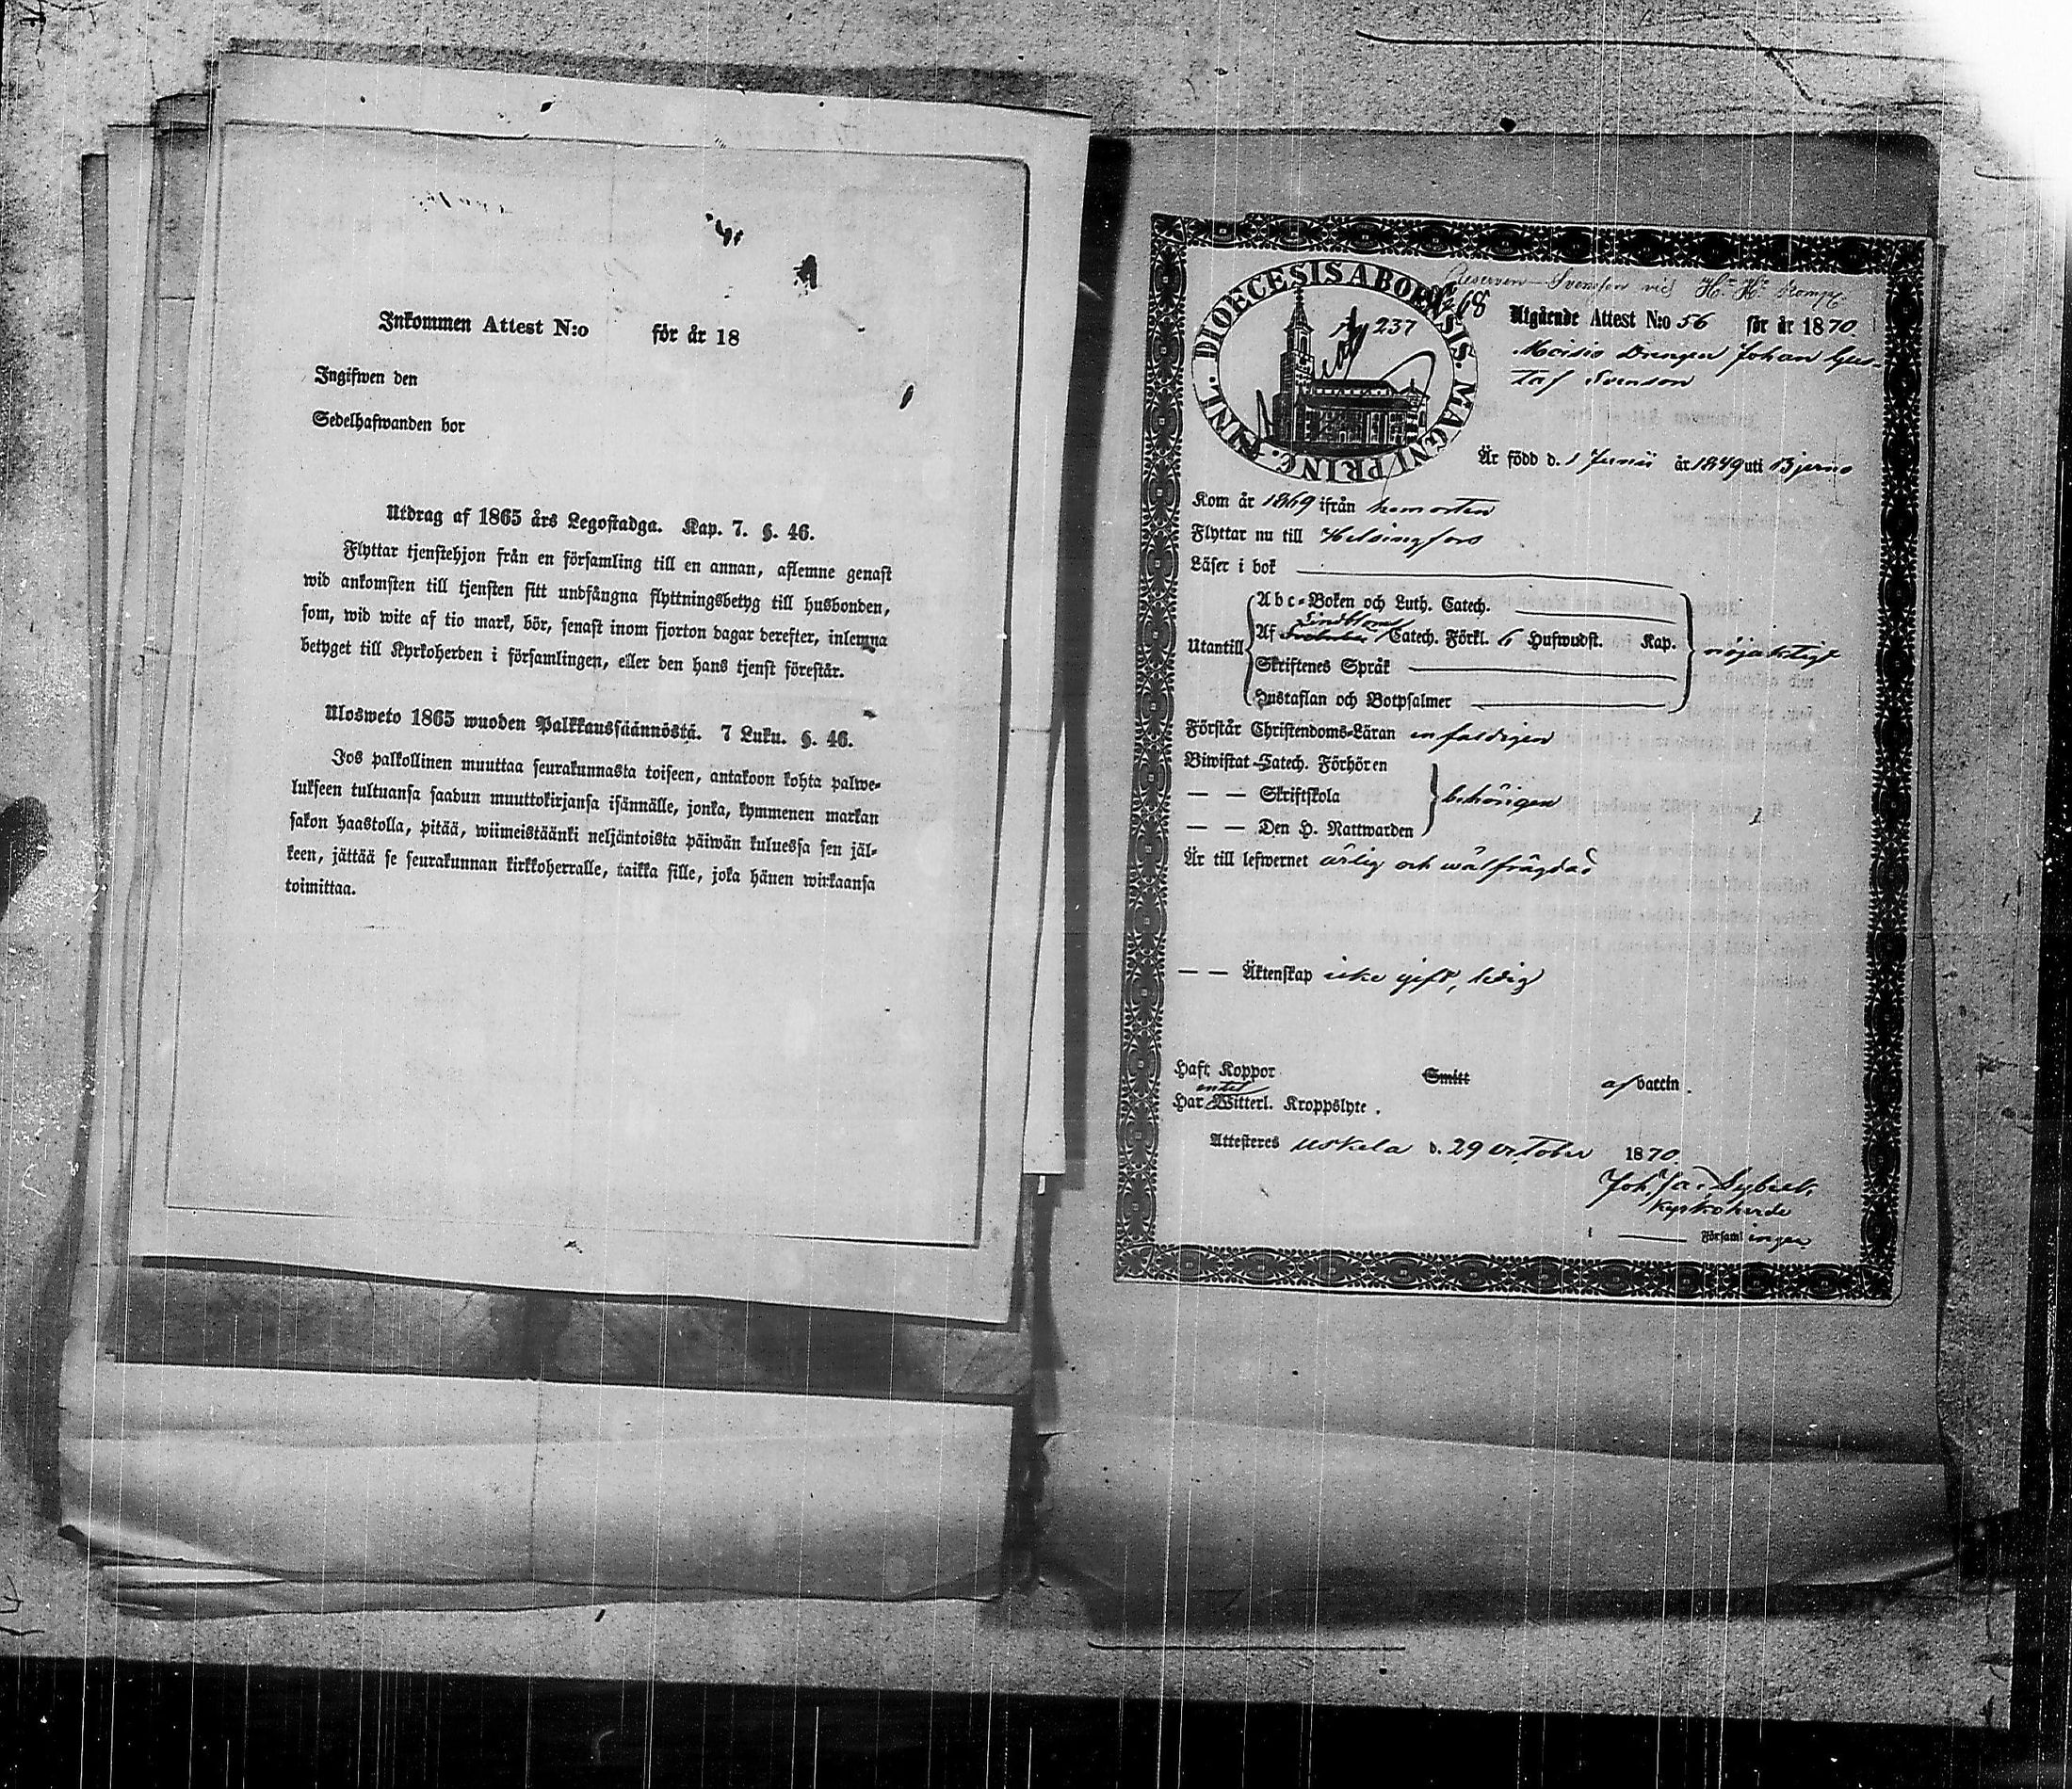 Inkommen Attest N:o för år 18
Ingifwen den
Sedelhafwanden bor
Utdrag af 1865 års Legostadga. Kap. 7. §. 46.
Flyttar tjenstehjon från en församling till en annan, aflemne genast
wid ankomsten till tjensten sitt undfångna flyttningsbetyg till husbonden,
som, wid wite af tio mark, bör, senast inom fjorton dagar derefter, inlemna
betyget till Kyrkoherden i församlingen, eller den hans tjenst förestår.
Ulosweto 1865 wuoden Palkkaussäännöstä. 7 Luku. §. 46.
Jos palkollinen muuttaa seurakunnasta toiseen, antakoon kohta palwe-
lukseen tultuansa saadun muuttokirjansa isännälle, jonka, kymmenen markan
sakon haastolla, pitää, wiimeistäänki neljäntoista päiwän kuluessa sen jäl-
keen, jättää se seurakunnan kirkkoherralle, taikka sille, joka hänen wirkaansa
toimittaa.
Svensson vid
DIOECESIS ABOENSIS. MAGNI PRINC. FINL.
68
237
Utgående Attest N:o 56 för år 1870
Drengen Johan Gus-
taf Svenson
Är född d. 1 Junii år 1849 uti Bjerno
Kom år 1869 ifrån hemorten
Flyttar nu till Helsingfors
Läser i bok
Utantill
Abc-Boken och Luth. Catech.
Lindbloms
Af Svebelii Catech. Förkl. 6 Hufwudst. Kap.
Skriftenes Språk
Hustaflan och Botpsalmer
nöjaktigt
Förstår Christendoms-Läran enfaldigen
Biwistat Catech. Förhören
— — Skriftskola
— — Den H. Nattwarden
behörigen
Är till lefwernet ärlig och wälfrägdad
— — Äktenskap icke gift, ledig
Haft Koppor Smitt af vaccin.
intet
Har Witterl. Kroppslyte.
Attesteres Uskela d. 29 October 1870.
Kyrkoherde
Församlingen